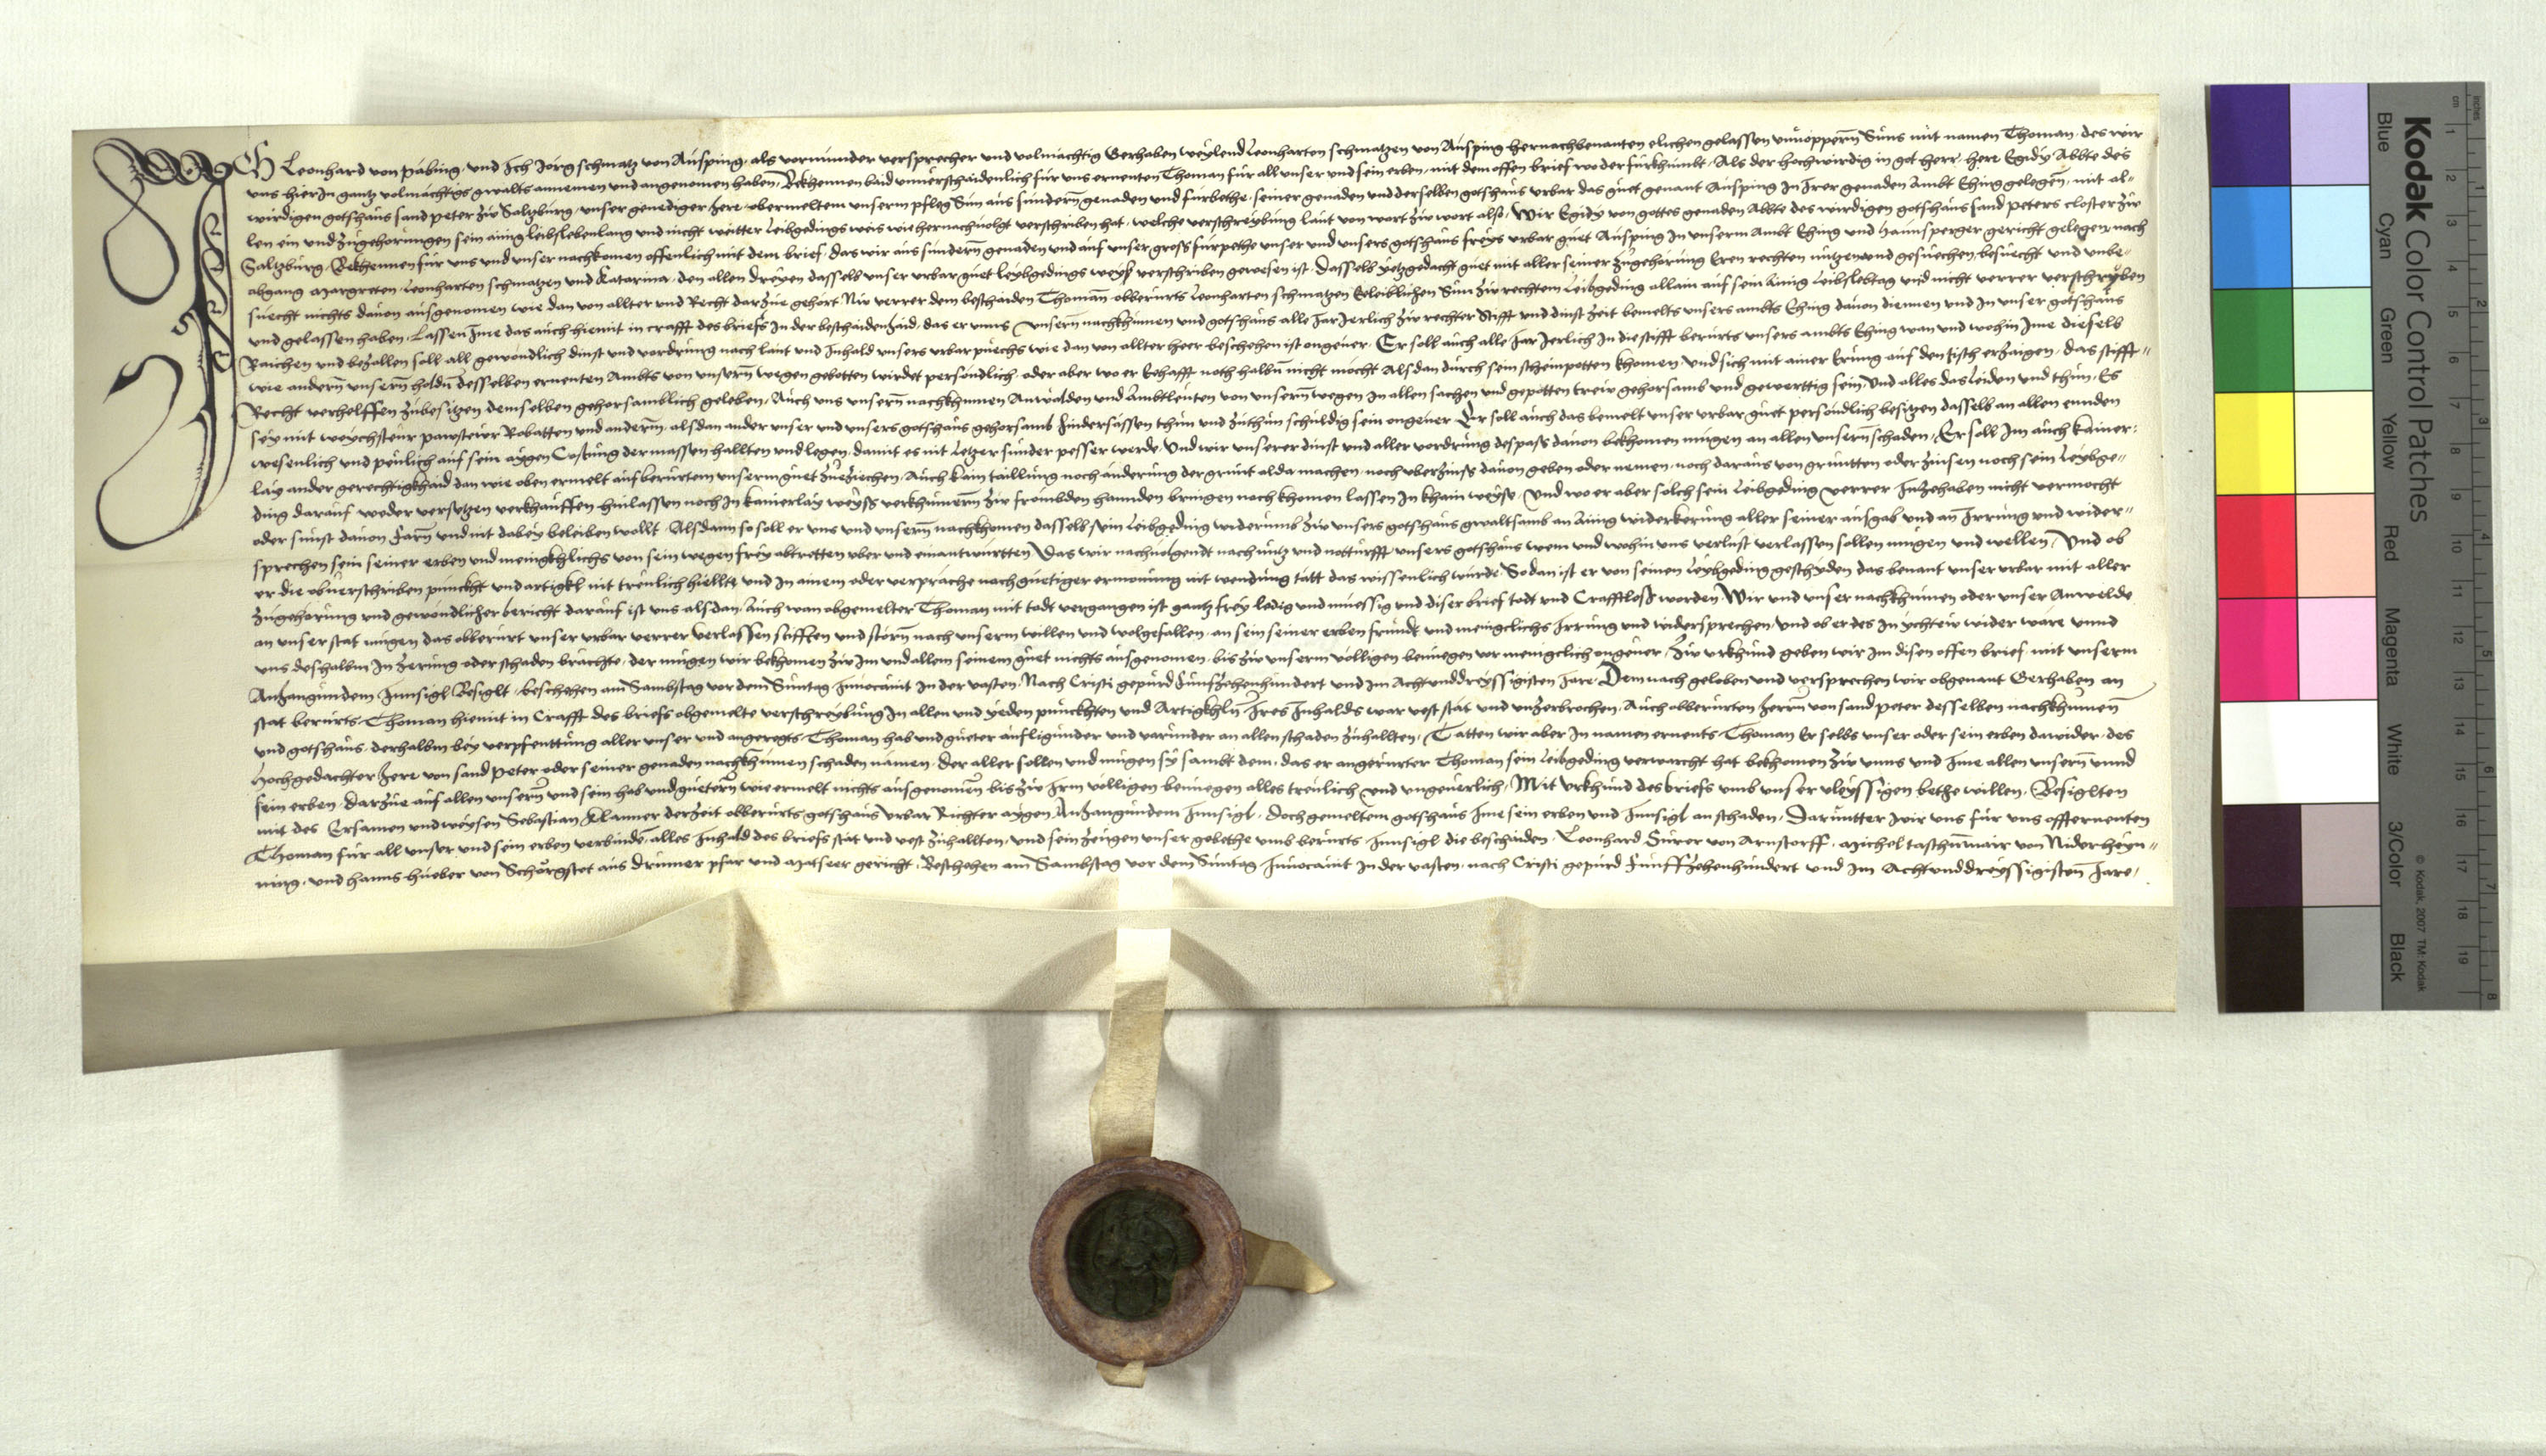 Ich Leonhard von Päbing, und Ich Jorg schmatz von Ausping, als vormunder versprecher und volmächtig Gerhaben weylend Leonharten schmatzen von Ausping hernachbenanten elichen gelassen Suns mit namen Thoman, des wir
uns hierIn gantz volmächtigs gwalts annemen und angenomen haben, Bekhennen baid unverschaidenlich für uns ernenten Thoman für all unser und sein erben, mit dem offen brief wo der fürkhumbt, Als der hochwirdig in got herr, herr Egidy Abbte des
wirdigen gotshaus sand peter zw Saltzburg, unser genediger herr obermeltem unserm pfleg Sun aus sundern genaden und fürbethe, seiner genaden und derselben gotshaus urbar das guet genant Ausping In Irer genaden Ambt Eching gelegen, mit al-
len ein und zugehorungen sein ainig leibslebenlang und nicht weitter leibgedings weis wie hernachuolgt verschriben hat, welche verschreybung laut von wort zw wort also, Wir Egidy von gottes genaden Abbte des wirdigen gotshaus sand peters closter zw
Saltzburg, Bekhennen für uns und unser nachkomen offenlich mit dem brief, das wir aus sundern genaden und auf unser gross fürpethe unser und unsers gotshaus freys urbar guet Ausping In unserm Ambt Eching und Haunsperger gericht gelegen nach
abgang Margreten, Leonharten schmatzen und Katarina, den allen dreyen dasselb unser urbar guet leybgedings weys verschriben gewesen ist, dasselb yetzgedacht guet mit aller seiner zugehorung Eren rechten nutzen und gesuechen, besuecht und unbe-
suecht nichts dauon ausgenomen wie dan von allter und Recht darzue gehört Nw verrer dem beschaiden Thoman obberurts Leonharten schmatzen Eeleiblichen Sun zw rechtem leibgeding allain auf sein Ainig leibslebtag und nicht verrer verschryben
und gelassen haben, Lassen Ime das auch hiemit in crafft des briefs In der beschaidenhaid, das er unns unsern nachkhumen und gotshaus alle Jar Jerlich zw rechter Stifft und dinst zeit bemelts unsers ambts Eching dauon diennen und In unser gotshaus
Raichen und bezallen soll all gewondlich dinst und vordrung nach laut und Inhald unsers urbarpuechs wie dan von allter heer beschehen ist ongeuer, Er soll auch alle Jar Jerlich In die stifft berurts unsers ambts Eching wan und wohin Ime dieselb
wie andern unsern holdn desselben ernenten Ambts von unsern wegen gebotten wirdet persondlich, oder aber wo er Eehafft noth halbn nicht möcht Alsdan durch sein scheinpotten khomen, und sich mit ainer Erung auf den tisch erzaigen, das stifft-
Recht verholffen zubesitzen demselben gehorsamblich geleben, Auch uns unsern nachkhumen Anwälden und Ambtleuten von unsern wegen In allen sachen und gepotten trew gehorsamb und gewerttig sein, Und alles das leiden und thun, Es
sey mit weychsteur pawsteur Robatten und anderm, alsdan ander unser und unsers gotshaus gehorsamb hindersassen thun und zuthun schuldig sein ongeuer, Er soll auch das bemelt unser urbar guet persondlich besitzen dasselb an allen ennden
wesenlich und peulich auf sein aygen Costung dermassen hallten und legen, damit es nit letzer sunder pesser werde, Und wir unserer dinst und aller vordrung despass dauon bekhomen mugen an allen unsern schaden, Er soll Im auch kainer-
lay ander gerechtigkhaid dan wie oben ermelt auf berurtem unserm guet zueziechen, Auch kain taillung noch änderung der grünt alda machen, noch uberzinss dauon geben oder nemen, noch daraus von grüntten oder heusen noch sein leybge-
ding darauf weder versetzen verkhauffen hinlassen noch In kainerlay weyss verkhumern zw frombden hannden bringen noch khomen lassen In khain weyse, Und wo er aber solch sein leibgeding verrer Inzehaben nicht vermocht
oder sunst dauon farn und nit dabey beleiben wollt, Alsdann so soll er uns und unsern nachkhomen dasselb sein leibgeding widerumb zw unsers gotshaus gwaltsamb an Ainig widerkerung aller seiner ausgab und an Irrung und wider-
sprechen sein seiner erben und menigkhlichs von sein wegen frey abtretten uber und einantwurtten, Das wir nachuolgendt nach nutz und notturfft unsers gotshaus wem und wohin uns verlust verlassen sollen mugen und wellen, Und ob
er die obuerschriben punckht und artigkl nit treulich hiellte und In ainem oder verpräche nach guetiger ermonung nit wendung tätt das wissenlich wurde, So dan ist er von seinen leybgeding geschyden das benant unser urbar mit aller
zugehorung und gewondlicher bericht darauf ist uns alsdan, Auch wan obgemelter Thoman mit todt vergangen ist gantz frey ledig und muessig und diser brief todt und Crafftloss worden, Wir und unser nachkhumen oder unser Anwelde
an unser stat mugen das obberurt unser urbar verrer verlassen stifften und störn nach unserm willen und wolgefallen, an sein seiner erben freundt und menigclichs Irrung und widersprechen, und ob er des In ychtew wider ware unnd
uns deshalbm In zerung oder schaden brächte, der mugen wir bekhomen zw im und allem seinem guet nichts ausgenomen, bis zw unserm völligen benuegen vor menigclich ongeuer, Zw urkhund geben wir Im disen offen brief mit unserm
Anhangundem Innsigl Besiglt, beschehen am Sambstag vor dem Suntag Inuocauit In der vasten, Nach Cristi gepurd Funfzehenhundert und Im Achtunddreyssigisten Jare, Demnach geloben und versprechen wir obgenant Gerhaben an
stat berurts Thoman hiemit in Crafft des briefs obgemelte verschreybung In allen und yeden punckhten und Artigkhln Ires Inhalds war vest stät und unzerbrochen, Auch obberurten herrn von sand peter desselben nachkhumen
und gotshaus, derhalbm bey verpfenttung aller unser und angeregts Thoman hab und gueter aufligunder und varunder an allen schaden zuhallten, Tätten wir aber In namen ernents Thoman Er selbs unser oder sein erben dawider, des
hochgedachter herr von sand peter oder seiner genaden nachkhumen schaden nämen, der aller sollen und mugen sy sambt dem, das er angerurter Thoman sein leibgeding verwarcht hat bekhomen zw unns und Ime allen unsern unnd
sein erben, darzue auf allen unsern und sein hab und guetern wie ermelt nichts ausgenomen bis zw Irm völligen benuegen alles treulich und ungeuerlich, Mit urkhund des briefs umb unser vleyssigen bethe willen, Besiglten
mit des Ersamen und weysen Sebastian Klanner derzeit obberurts gotshaus urbar Richter aygen Anhangundem Innsigl, doch gemeltem gotshaus Ime sein erben und Innsigl an schaden, Darunter wir uns für uns offternenten
Thoman für all unser und sein erben verbinden, alles Inhald des briefs stät und vest zuhallten, und sein zeugen unser gebethe umb berurts Innsigl die beschaiden, Leonhard Furer von Arnstorff, Michel taschnmair von Niderheyn-
ning, und hanns hueber von Schörgstet aus drumer pfar und Matseer gericht, Beschehen am Sambstag vor dem Suntag Inuocauit In der vasten, nach Cristi gepurd Funffzehenhundert und Im Achtunddreyssigisten Jare,
Kodak Color Control Patches
Blue Cyan Green Yellow Red Magenta White 3/Color Black
© Kodak, 2007 TM: Kodak
cm 1 2 3 4 5 6 7 8 9 10 11 12 13 14 15 16 17 18 19
inches 1 2 3 4 5 6 7 8